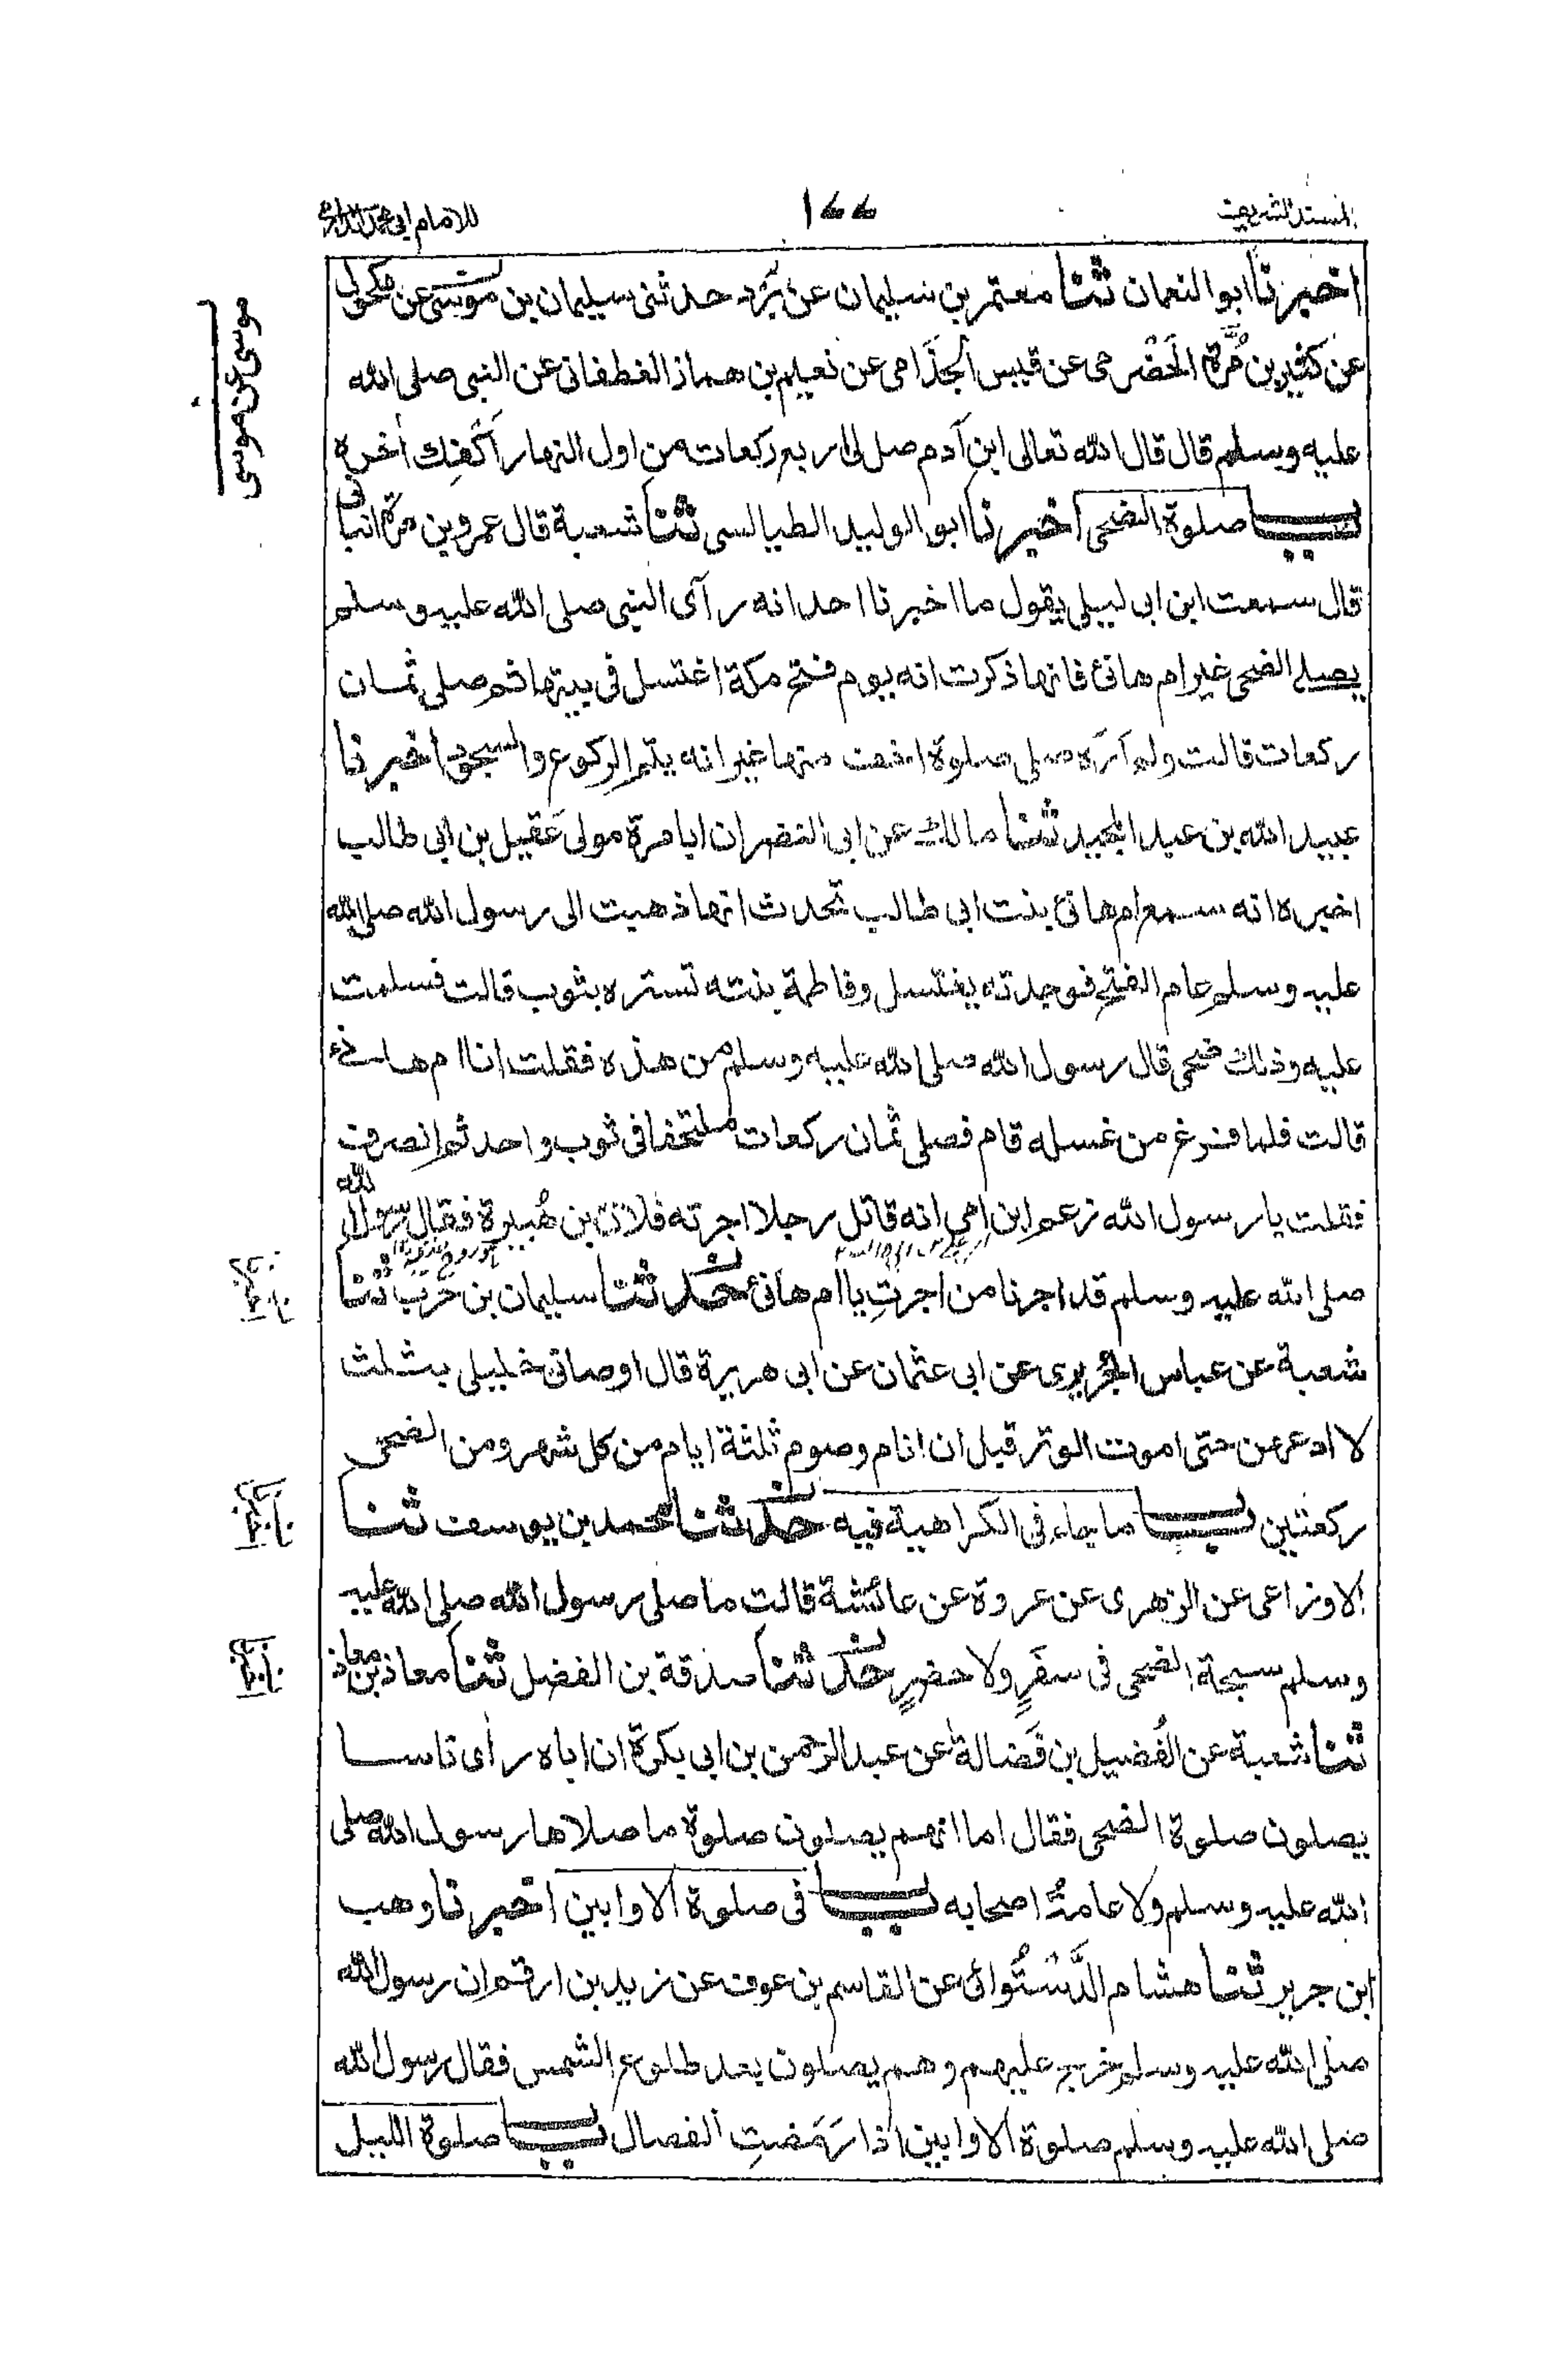 المسند الشريف
١٧٧
للامام ابي محمد الدارمي
اخبرنا ابو النعمان ثنا معتمر بن سليمان عن بُرد حدثنى سليمان بن موسى عن مكحول
عن كثير بن مُرَّة الحَضْرمى عن قيس الجُذَامى عن نعيم بن همار الغطفانى عن النبى صلى الله
عليه وسلم قال قال الله تعالى ابن آدم صل لى اربع ركعات من اول النهار أكْفِك اٰخره
باب صلوة الضحى اخبرنا ابو الوليد الطيالسى ثنا شعبة قال عمرو بن مرة انبأنى
قال سمعت ابن ابى ليلى يقول ما اخبرنا احد انه رآى النبى صلى الله عليه وسلم
يصلى الضحى غير ام هانئ فانها ذكرت انه يوم فتح مكة اغتسل فى بيتها ثم صلى ثمان
ركعات قالت ولم أرَه صلى صلوة اخف منها غير انه يتم الركوع والسجود اخبرنا
عبيد الله بن عبد المجيد ثنا مالك عن ابى النضر ان ابا مرة مولى عَقيل بن ابى طالب
اخبره انه سمع ام هانئ بنت ابى طالب تحدث انها ذهبت الى رسول الله صلى الله
عليه وسلم عام الفتح فوجدته يغتسل وفاطمة بنته تستره بثوب قالت فسلمت
عليه وذلك ضحى قال رسول الله صلى الله عليه وسلم من هذه فقلت انا ام هانئ
قالت فلما فرغ من غسله قام فصلى ثمان ركعات ملتحفا فى ثوب واحد ثم انصرف
فقلت يا رسول الله زعم ابن امى انه قاتل رجلا اجرته فلان بن هُبيرة فقال رسول الله
صلى الله عليه وسلم قد اجرنا من اجرتِ يا ام هانئ حدثنا سليمان بن حرب ثنا
شعبة عن عباس الجُريرى عن ابى عثمان عن ابى هريرة قال اوصانى خليلى بثلث
لا ادعهن حتى اموت الوتر قبل ان انام وصوم ثلثة ايام من كل شهر ومن الضحى
ركعتين باب ما جاء فى الكراهية فيه حدثنا محمد بن يوسف ثنا
الاوزاعى عن الزهرى عن عروة عن عائشة قالت ما صلى رسول الله صلى الله عليه
وسلم سبحة الضحى فى سفَرٍ ولا حضرٍ حدثنا صدقة بن الفضل ثنا معاذ بن معاذ
ثنا شعبة عن الفُضيل بن فَضالة عن عبد الرحمن بن ابى بكرة ان اباه رأى ناسا
يصلون صلوة الضحى فقال اما انهم يصلون صلوة ما صلاها رسول الله صلى
الله عليه وسلم ولا عامةُ اصحابه باب فى صلوة الاوابين اخبرنا وهب
ابن جرير ثنا هشام الدَّسْتُوائى عن القاسم بن عوف عن زيد بن ارقم ان رسول الله
صلى الله عليه وسلم خرج عليهم وهم يصلون بعد طلوع الشمس فقال رسول الله
صلى الله عليه وسلم صلوة الاوابين اذا رَمَضتِ الفصال باب صلوة الليل
موسى عن موسى